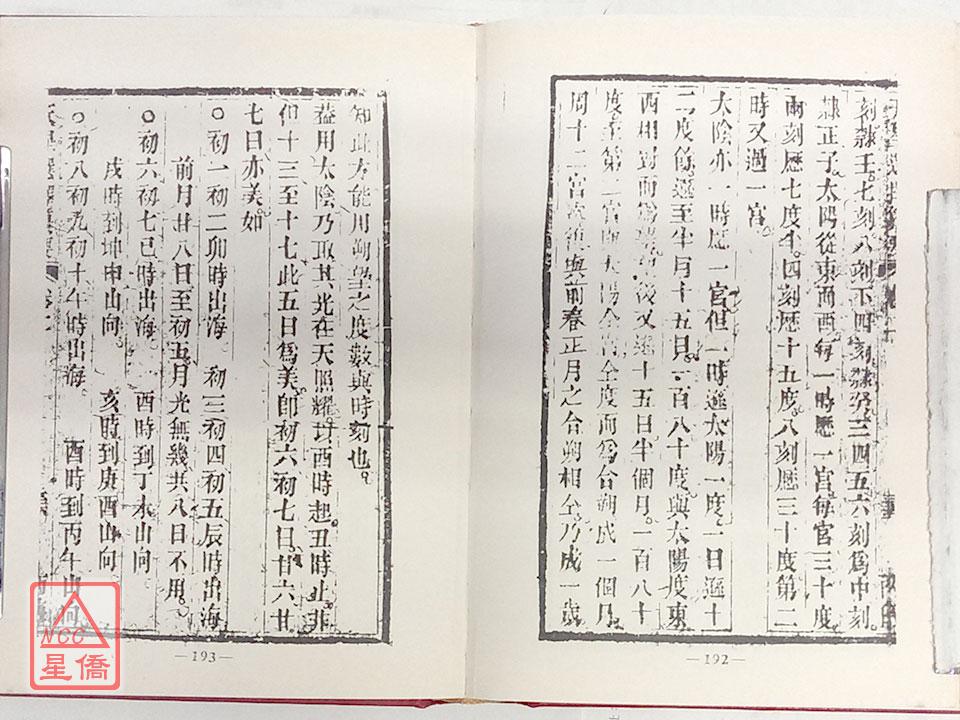 刻隸壬。七刻八刻下四刻隸癸。三四五六刻為中刻。
隸正子。太陽從東而西。每一時歷一宮。每宮三十度
兩刻歷七度半。四刻歷十五度。八刻歷三十度。第二
時又過一宮。
太陰亦一時歷一宮。但一時遲太陽一度。一日遲十
二度餘。遲至半月十五日。一百八十度與太陽度東
西相對而為望。望後又遲十五日半個月。一百八十
度。至第一宮與太陽仝宮仝度而為合朔。成一個月
周十二宮次復與前春正月之合朔相仝。乃成一歲
—192—
知此方能用朔望之度數與時刻也。
葢用太陰乃取其光在天照耀。以酉時起丑時止。非
但十三至十七此五日為美。即初六初七日。廿六廿
七日亦美。如
○初一初二卯時出海 初三初四初五辰時出海
前月廿八日至初五。月光無幾共八日不用。
○初六初七巳時出海。 酉時到丁未山向
戌時到坤申山向 亥時到庚酉山向
○初八初九初十午時出海。 酉時到丙午山向
—193—
NCC
星僑